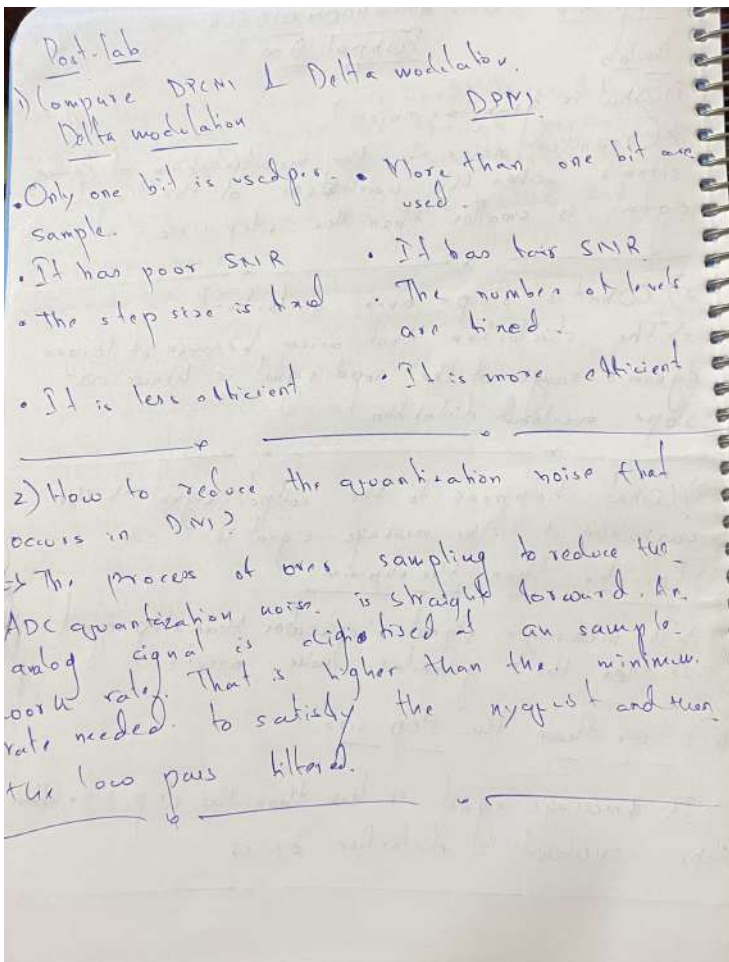 Post-lab
1) Compare DPCM & Delta modulation.
Delta modulation DPCM.
• Only one bit is used per • More than one bit are
sample. used.
• It has poor SNR • It has fair SNR
• The step size is fixed • The number of levels
are fixed.
• It is less efficient • It is more efficient
2) How to reduce the quantization noise that
occurs in DM?
=> The process of over sampling to reduce the
ADC quantization noise is straight forward. An
analog signal is digitised at an sample
rate. That is higher than the minimum
rate needed to satisfy the nyquist and then
the low pass filtered.